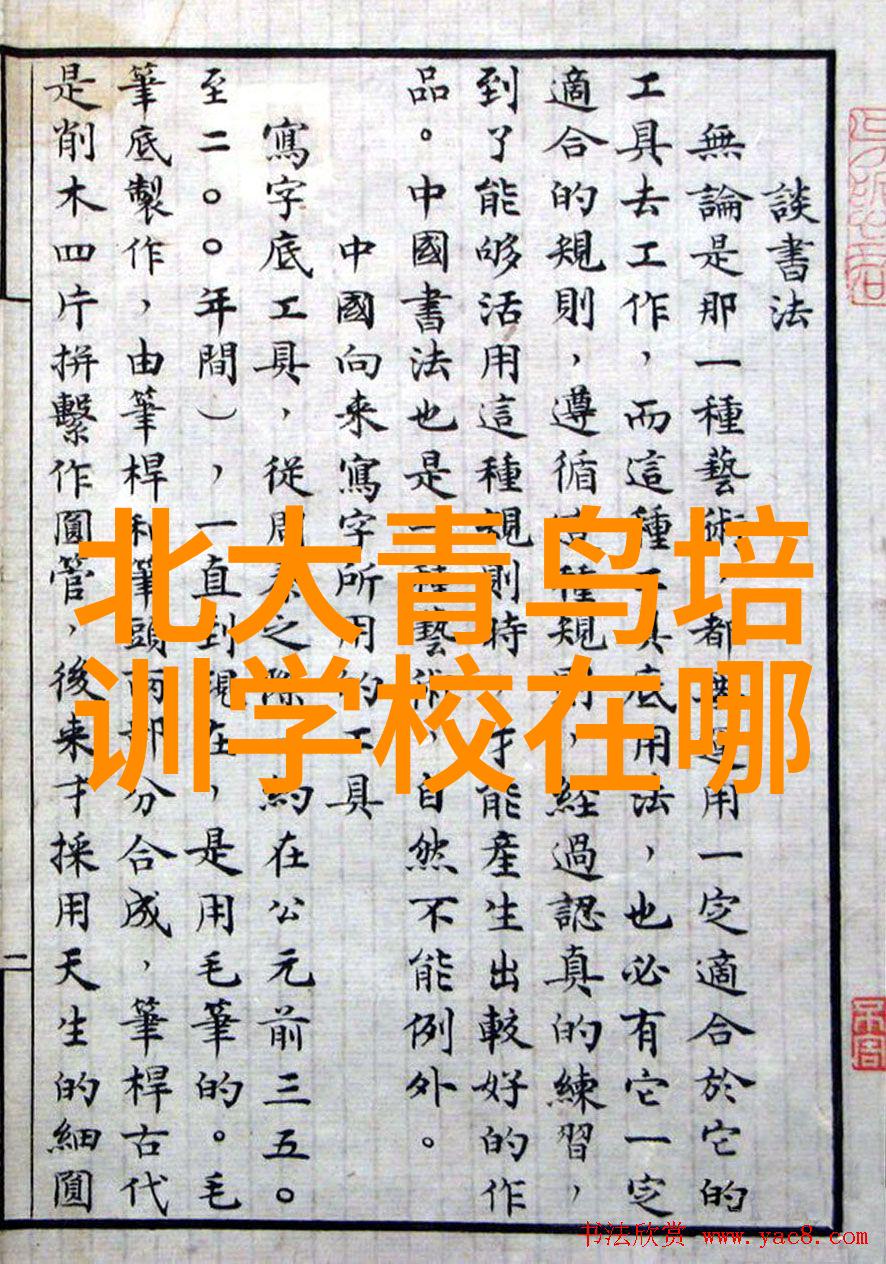 談書法
無論是那一種藝術，都運用一定適合於它的
工具去工作，而這種工具底用法，也必有它一定
適合的規則，遵循這種規則，經過認真的練習，
到了能够活用這種規則時，才能產生出較好的作
品。中國書法也是一種藝術，自然不能例外。
中國向來寫字所用的工具
寫字底工具，從周秦之際約在公元前三五〇
至二〇〇年間），一直到現在，是用毛筆的。毛
筆底製作，由筆桿和筆頭兩部分合成，筆桿古代
是削木四片拼繫作圓管，後來才採用天生的細圓
二
北大青鸟培
训学校在哪
书法欣赏 www.yac8.com